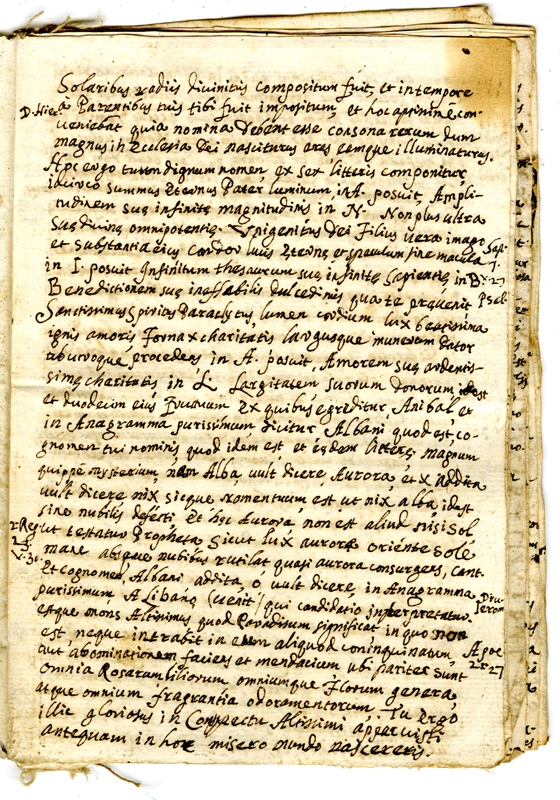 Solaribus radiis divinitus compositum fuit, et in tempore
D. Hier. a Parentibus tuis tibi fuit impositum, et hoc apprimè con-
veniebat quia nomina debent esse consona rerum dum
magnus in ecclesia Dei nasciturus eras eamque illuminaturus.
Hoc ergo tuum dignum nomen ex sex litteris componitur
idcirco summus Æternus Pater luminum, in A. posuit Ampli-
tudinem suę infinitę magnitudinis in N. Non plus ultra
suę divinę omnipotentię. Unigenitus Dei Filius vera imago
et substantia eius candor lucis ęternę et speculum sine macula Sap.
7.
in I. posuit infinitum thesaurum suę infinitę sapientię, in B. v. 27
Benedictionem suę ineffabilis dulcedinis qua te prevenit Psal.
Sanctissimus Spiritus Paraclytus, lumen cordium lux beatissima
ignis amoris Fornax charitatis largusque munerum dator
ab utroque procedens in A. posuit, Amorem suę ardentis-
simę charitatis in L Largitatem suorum donorum idest
et duodecim eius Fructuum ex quibus egreditur, Anibal et
in Anagramma purissimum dicitur Albani quod est, co-
gnomen tui nominis quod idem est et eędem litterę; magnum
quippe mysterium, nam Alba vult dicere Aurora, et X addita
vult dicere nix, sicque nomentuum est ut nix alba, idest
sine nubilis defecti et hęc Aurora, non est aliud nisi Sol
2. Reg. ut testatur Propheta sicut lux aurorę oriente Sole
23.
v. 3. mane absque nubibus rutilat quasi aurora consurgens, Cant.
et cognomen, Albani addita, o vult dicere, in Anagramma
purissimum A Libano (venit) qui candidatio interpretatur Div.
Ierom
estque mons Altissimus quod Paradisum significat in quo non
est, neque intrabit in eum aliquod coinquinatum, Apoc
aut abominationem faciens et mendacium ubi pariter sunt 21. 27
omnia Rosarum liliorum omniumque Florum genera,
atque omnium fragrantia odoramentorum. Tu ergo
illic gloriosus in Conspectu Altissimi apparuisti
antequam in hoc misero mundo nascereris.